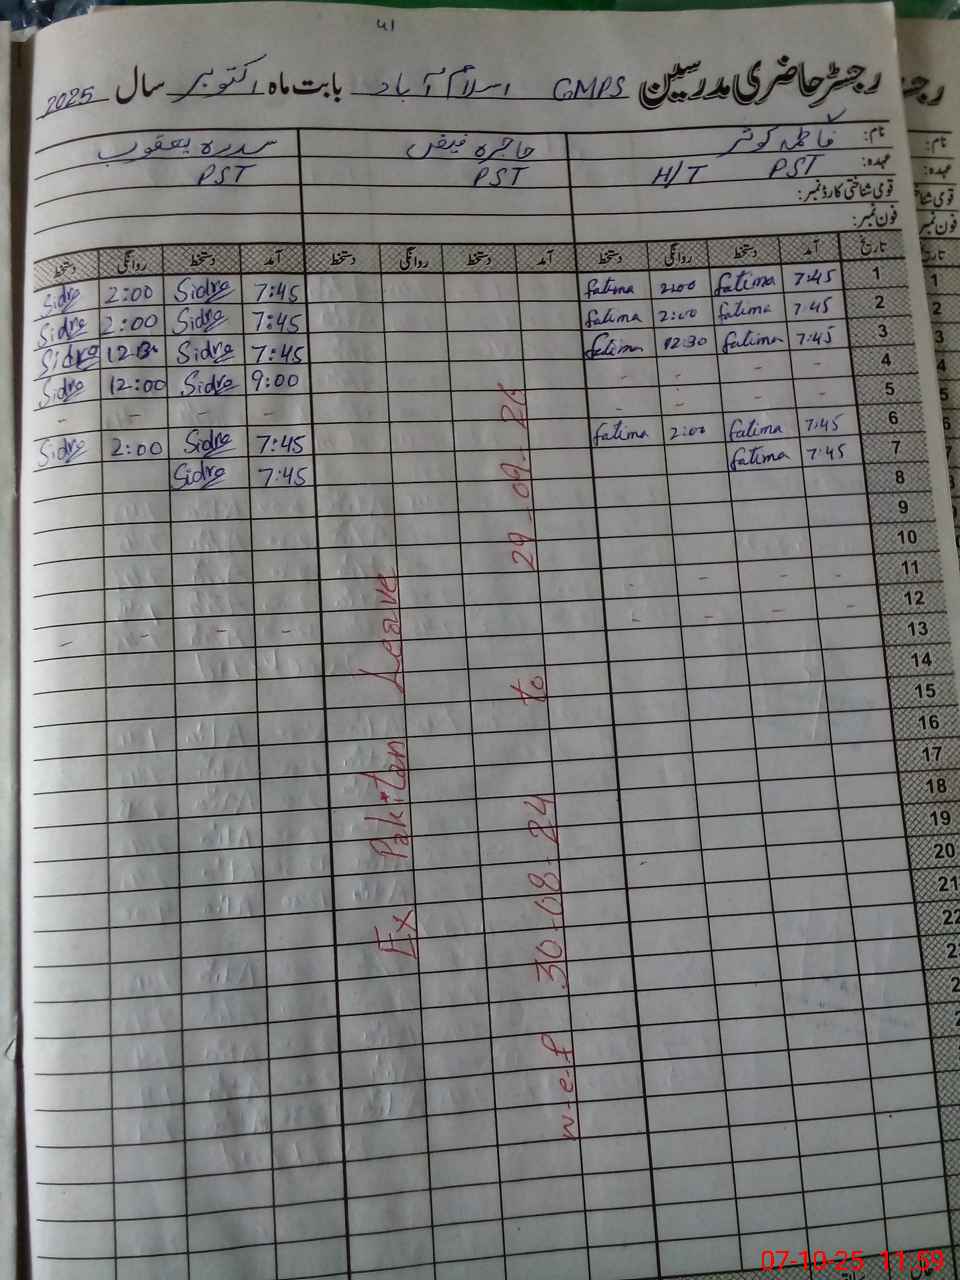 ۴۱
رجسٹر حاضری مدرسین GMPS اسلام آباد بابت ماہ اکتوبر سال 2025
نام: فاطمہ کوثر حاجرہ فیض سدرہ یعقوب
عہدہ: PST H/T PST PST
قومی شناختی کارڈ نمبر:
فون نمبر:
تاریخ آمد دستخط روانگی دستخط آمد دستخط روانگی دستخط آمد دستخط روانگی دستخط
1 7:45 fatima 2:00 fatima 7:45 Sidra 2:00 Sidra
2 7:45 fatima 2:00 fatima 7:45 Sidra 2:00 Sidra
3 7:45 fatima 12:30 fatima 7:45 Sidra 12:30 Sidra
4 - - - - 9:00 Sidra 12:00 Sidra
5 - - - - - - - -
6 7:45 fatima 2:00 fatima 7:45 Sidra 2:00 Sidra
7 7:45 fatima 7:45 Sidra
8
9
10
11 - - - -
12 - - - -
13 - - - -
14
15
16
17
18
19
20
21
22
Ex Pakitan Leave
w-e-f 30-08-24 to 29-09-26
07-10-25 11:59